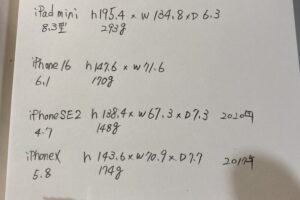 iPad mini h195.4 × W 134.8 × D 6.3
8.3型 293g
iPhone 16 h147.6 × W71.6
6.1 170g
iPhone SE2 h 138.4 × W67.3 × D7.3 2020年
4.7 148g
iPhone X h 143.6 × W70.9 × D7.7 2017年
5.8 174g